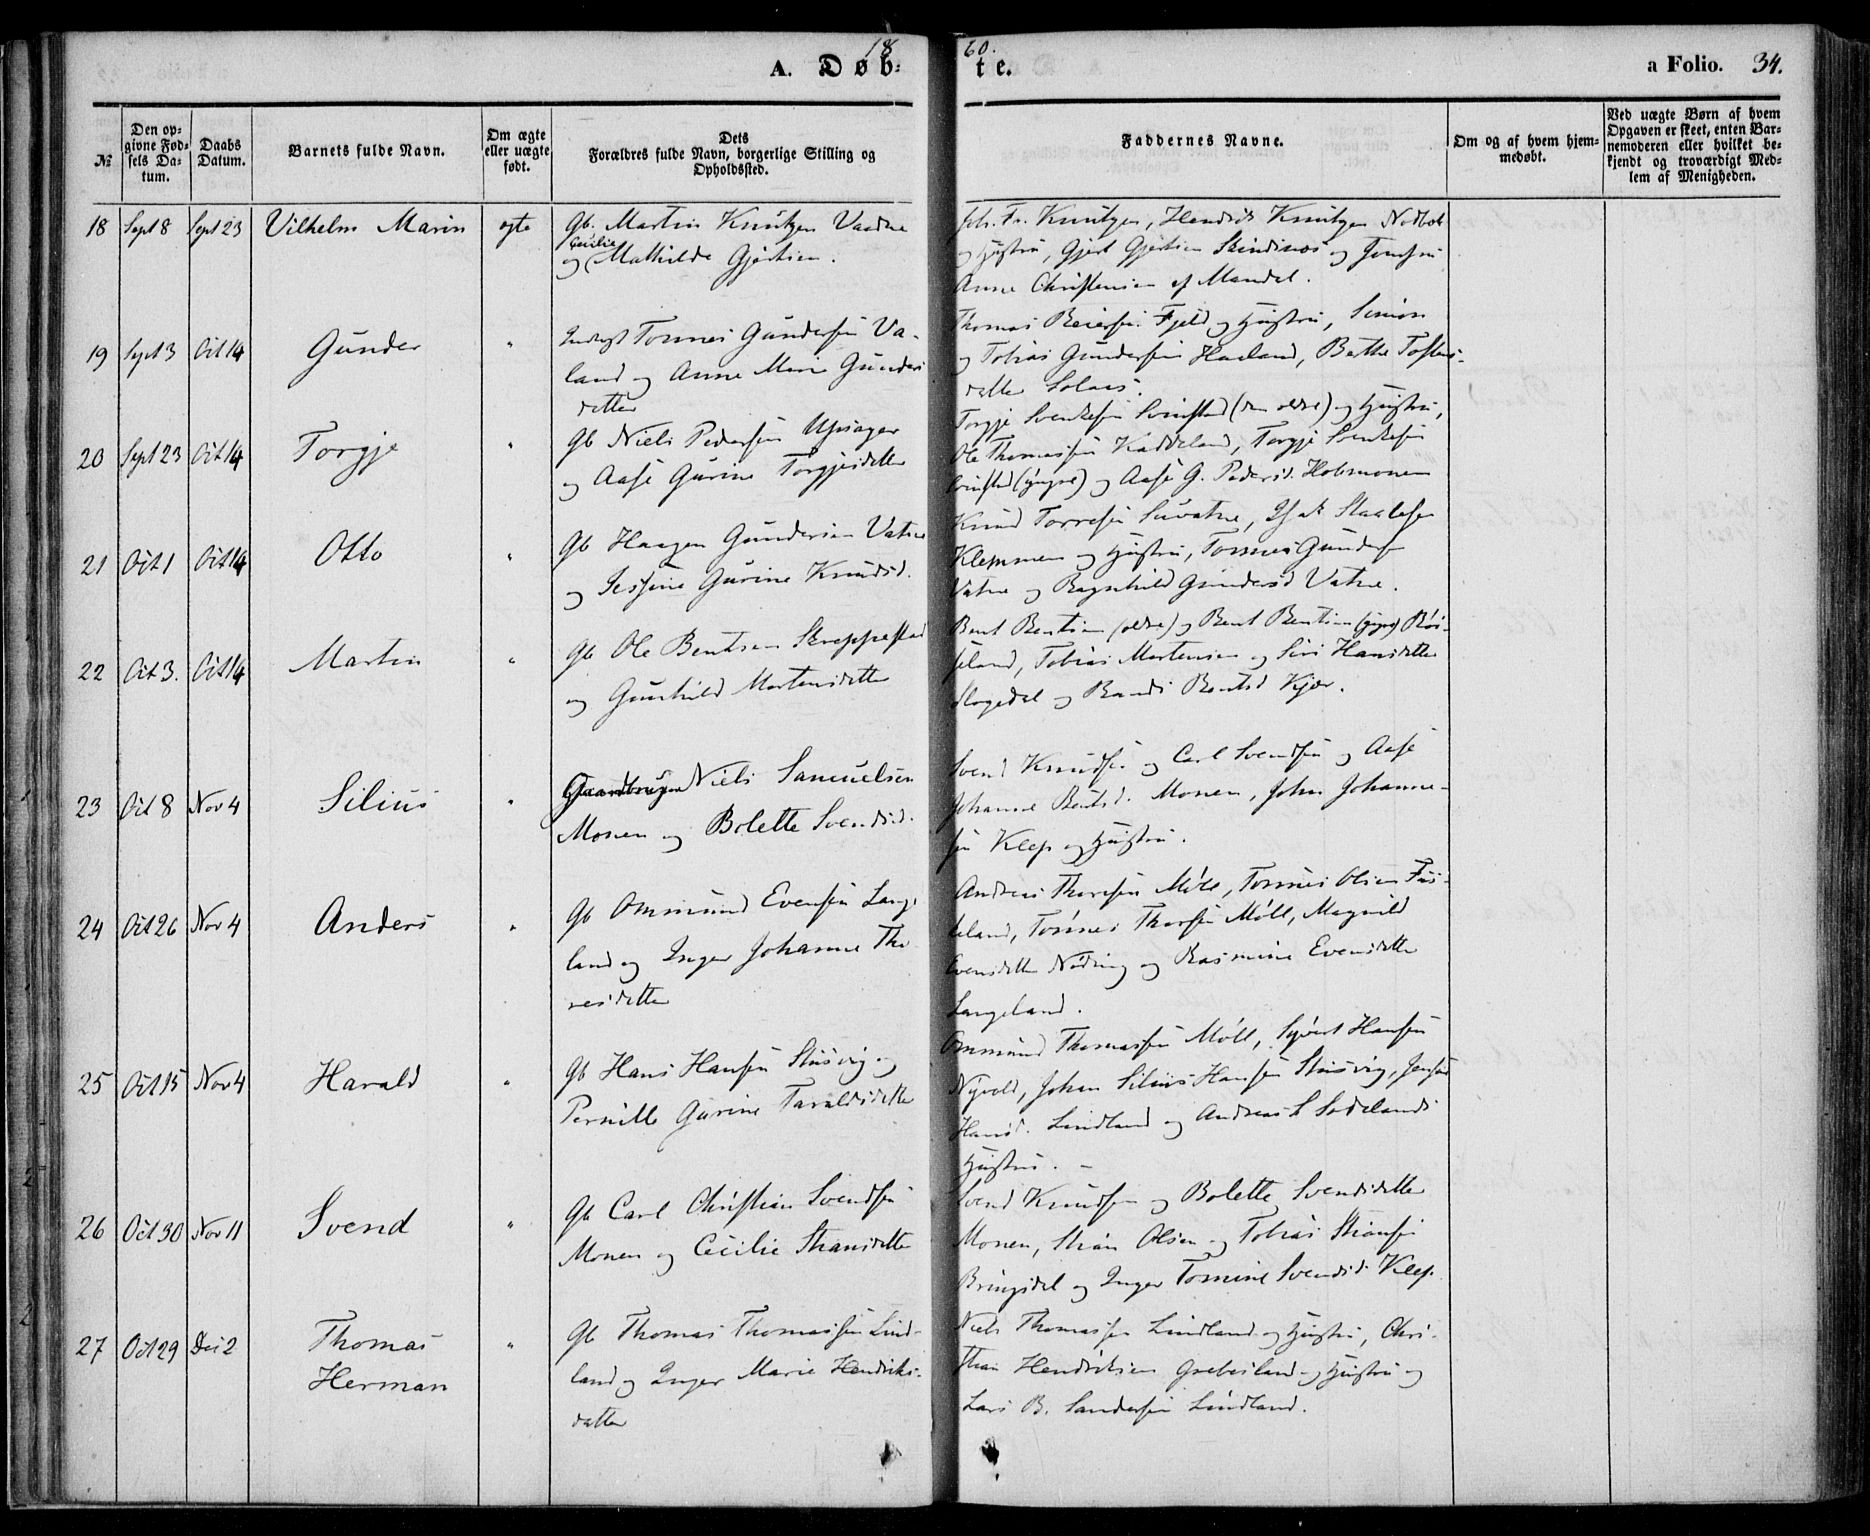 1860.
A. Døb-te.
a Folio. 34.
№
Den op-
givne Fød-
sels Da-
tum.
Daabs
Datum.
Barnets fulde Navn.
Om ægte
eller uægte
født.
Dets
Forældres fulde Navn, borgerlige Stilling og
Opholdssted.
Faddernes Navne.
Om og af hvem hjem-
medøbt.
Ved uægte Børn af hvem
Opgaven er skeet, enten Bar-
nemoderen eller hvilket be-
kjendt og troværdigt Med-
lem af Menigheden.
18 Sept 8 Sept 23 Vilhelm Marin egte Gb. Martin Knutzen
Cecilie
og Mathilde Gjertsen.
Fr. Knutzen, Hendrik Knutzen
og Hustru, Gjert Gjertsen og
Anne Christensen af Mandal.
19 Sept 3 Oct 14 Gunder " Tønnes Gundersen Va-
land og Anne Marie Gunders
datter
Thomas Reiersen Fjeld og Hustru, Simon
og Tobias Gundersen Haaland, Berthe
datter
20 Sept 23 Oct 14 Torgje " Gb Niels Pedersen
og Aase Gurine Torgjesdatter
Torgje Svendsen (den eldre) og Hustru,
Ole Thomassen Kaddeland, Torgje Svendsen
(yngre) og Aase G. Pedersd. Holmonen
21 Oct 1 Oct 14 Otto " Gb Haagen Gundersen Vatne
og Gurine Knudsd.
Knud Torresen, Isak Staalesen
Klemmen og Hustru, Tønnes Gundersen
Vatne og Ragnhild Gundersd Vatne.
22 Oct 3. Oct 14 Martin " Gb Ole Bentsen Skreppestad
og Gunhild Mortensdatter
Bent Bentsen (eldre) og Bent Bentsen (yngre) Røi-
seland, Tobias Mortensen og Siri Hansdatter
Slogedal og Randi Bentsd Kjær.
23 Oct 8 Nov 4 Silius " Gaardbruger Niels Samuelsen
Monen og Bolette Svendsd.
Svend Knudsen og Carl Svendsen og Aase
Johanne Bentsd. Monen, John Johanne-
sen Klep og Hustru.
24 Oct 26 Nov 4 Anders " Gb Ommund Evensen Lange
land og Inger Johanne Tho
resdatter
Andreas Thoresen Møll, Tønnes Olsen
land, Tønnes Thorsen Møll, Magnild
Evensdatter Nøding og Rasmine Evensdatter
Langeland.
25 Oct 15 Nov 4 Harald " Gb Hans Hansen Stusvig og
Pernille Gurine Taraldsdatter
Ommund Thomassen Møll, Syvert Hansen
Johan Silius Hansen Stusvig,
Hansd. Lindland og Andreas S Sodelands
Hustru. –
26 Oct 30 Nov 11 Svend " Gb Carl Christian Svendsen
Monen og Cecilie Stiansdatter
Svend Knudsen og Bolette Svendsdatter
Monen, Stian Olsen og Tobias Stiansen
Bringsdal og Inger Tomine Svendsd. Klep
27 Oct 29 Dec 2 Thomas
Herman " Gb Thomas Thomassen Lind-
land og Inger Marie Hendriks-
datter
Niels Thomassen Lindland og Hustru, Chri-
stian Hendriksen Grebesland og Hustru og
Lars B. Sandersen Lindland.